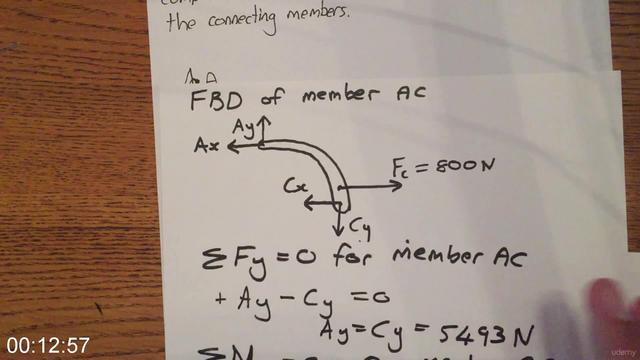 the connecting members.
FBD of member AC
Ay
Ax
Fc = 800N
Cx
Cy
ΣFy = 0 for member AC
+ Ay - Cy = 0
Ay = Cy = 5493 N
00:12:57
udemy